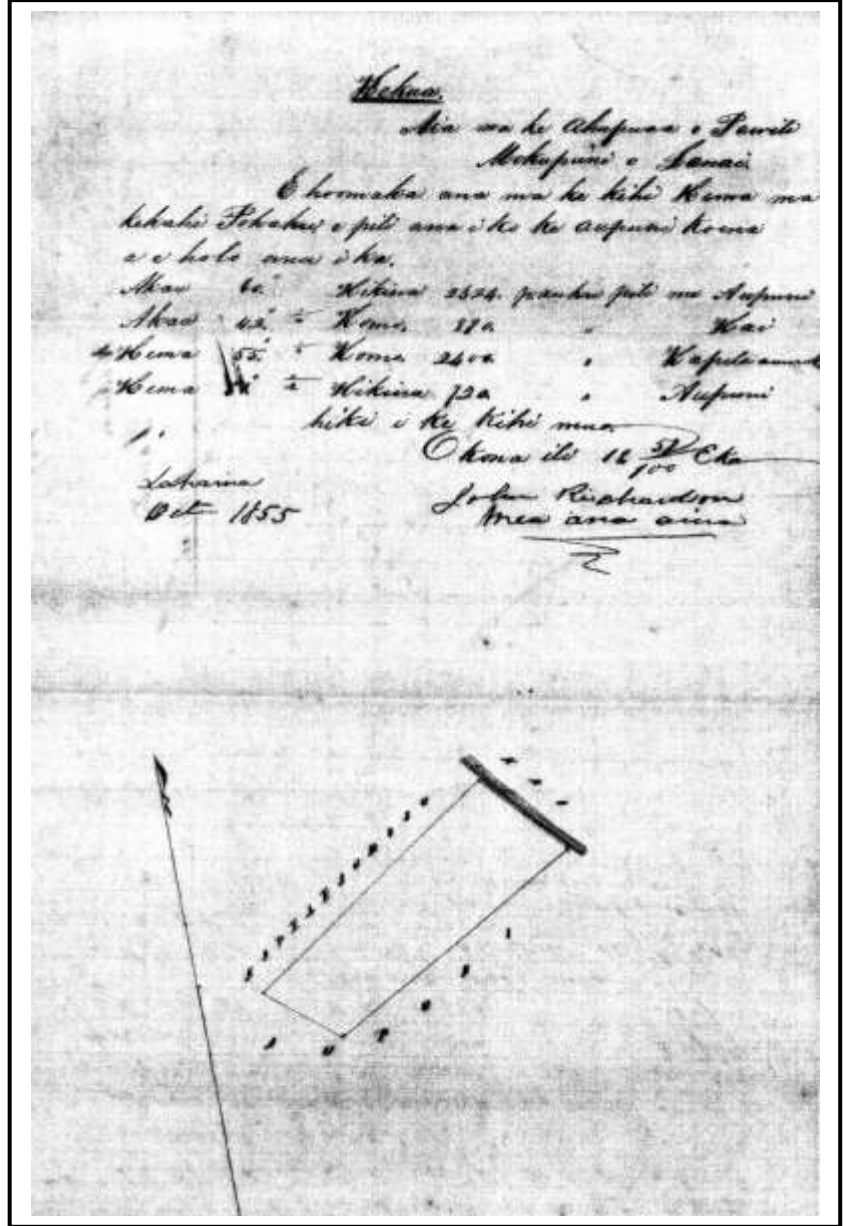 Kekua.
Aia ma ke Ahupuaa o Pawili
Mokupuni o Lanai
E hoomaka ana ma ke kihi Hema ma
kekahi Pohaku e pili ana i ko ke aupuni koena
a e holo ana i ka.
Akau 60.° Hikina 2324. pauku pili me Aupuni
Akau 42.° Komo. 870. " Kai
Hema 55.° Komo. 2400 "
Hema Hikina 720. " Aupuni
hiki i ke Kihi mua.
O kona ili 18 /100 Eka
Lahaina
Oct 1855
John Richardson
Mea ana aina